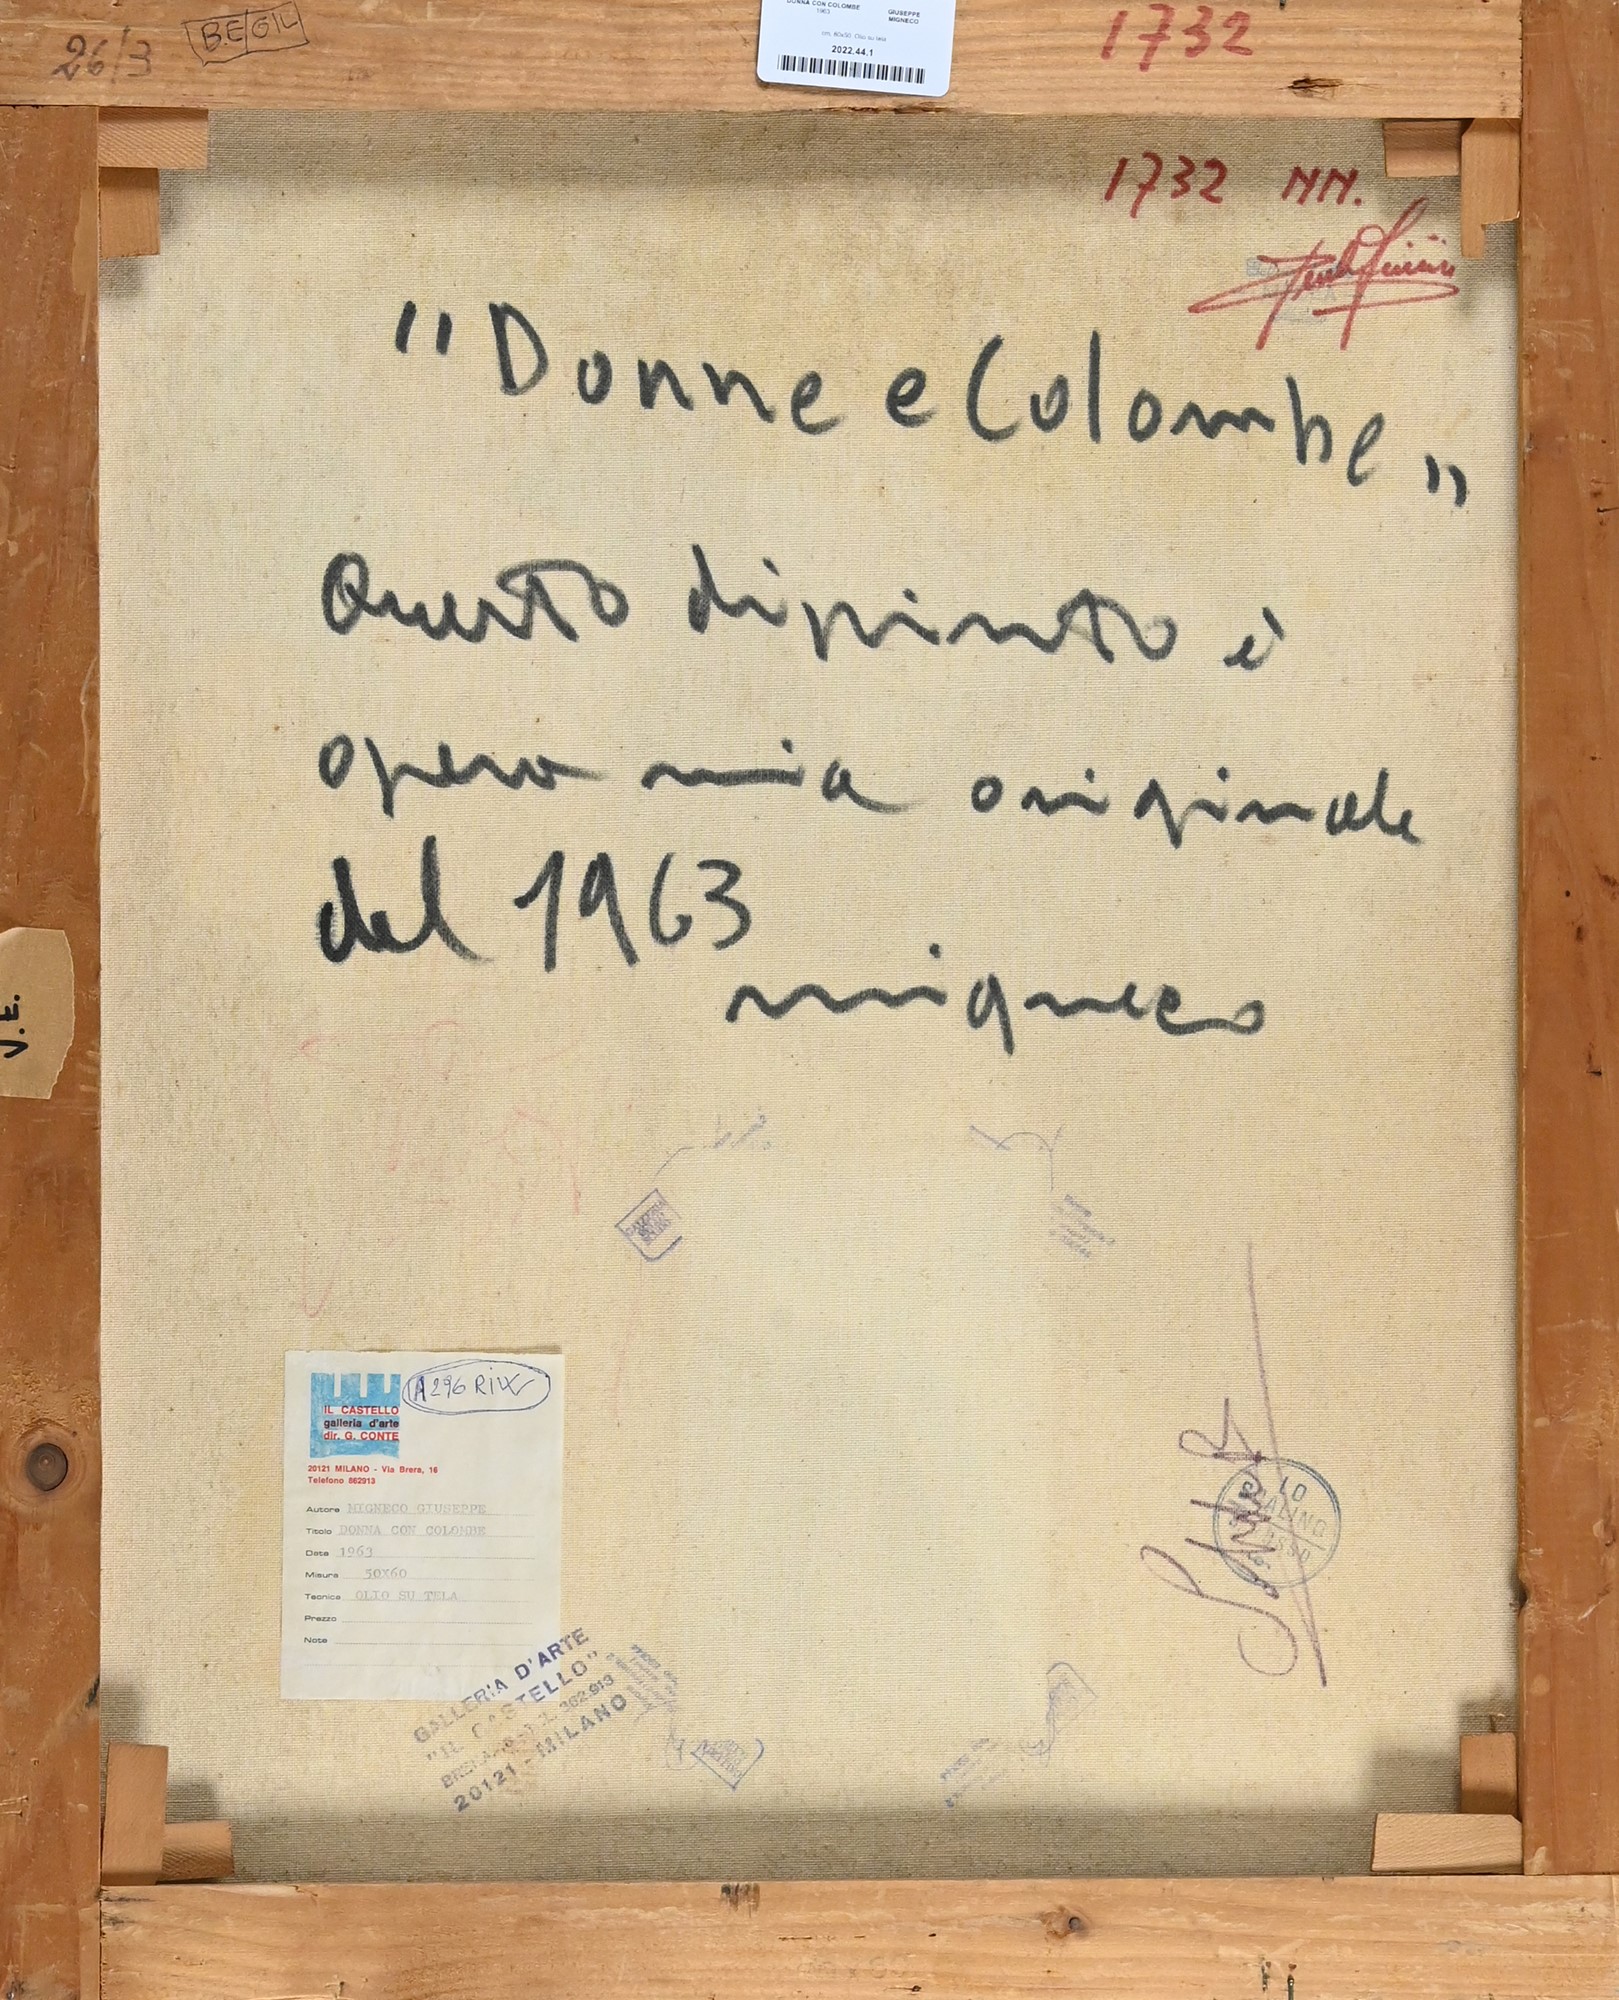 26/3
BE/GIL
DONNA CON COLOMBE
1963
GIUSEPPE
MIGNECO
cm. 60x50. Olio su tela
2022.44.1
1732
1732 NN.
"Donne e Colombe"
Questo dipinto è
opera mia originale
del 1963
migneco
V.E.
A296
IL CASTELLO
galleria d'arte
dir. G. CONTE
20121 MILANO - Via Brera, 16
Telefono 862913
Autore MIGNECO GIUSEPPE
Titolo DONNA CON COLOMBE
Data 1963
Misura 50X60
Tecnica OLIO SU TELA
Prezzo
Note
GALLERIA D'ARTE
"IL CASTELLO"
20121 - MILANO